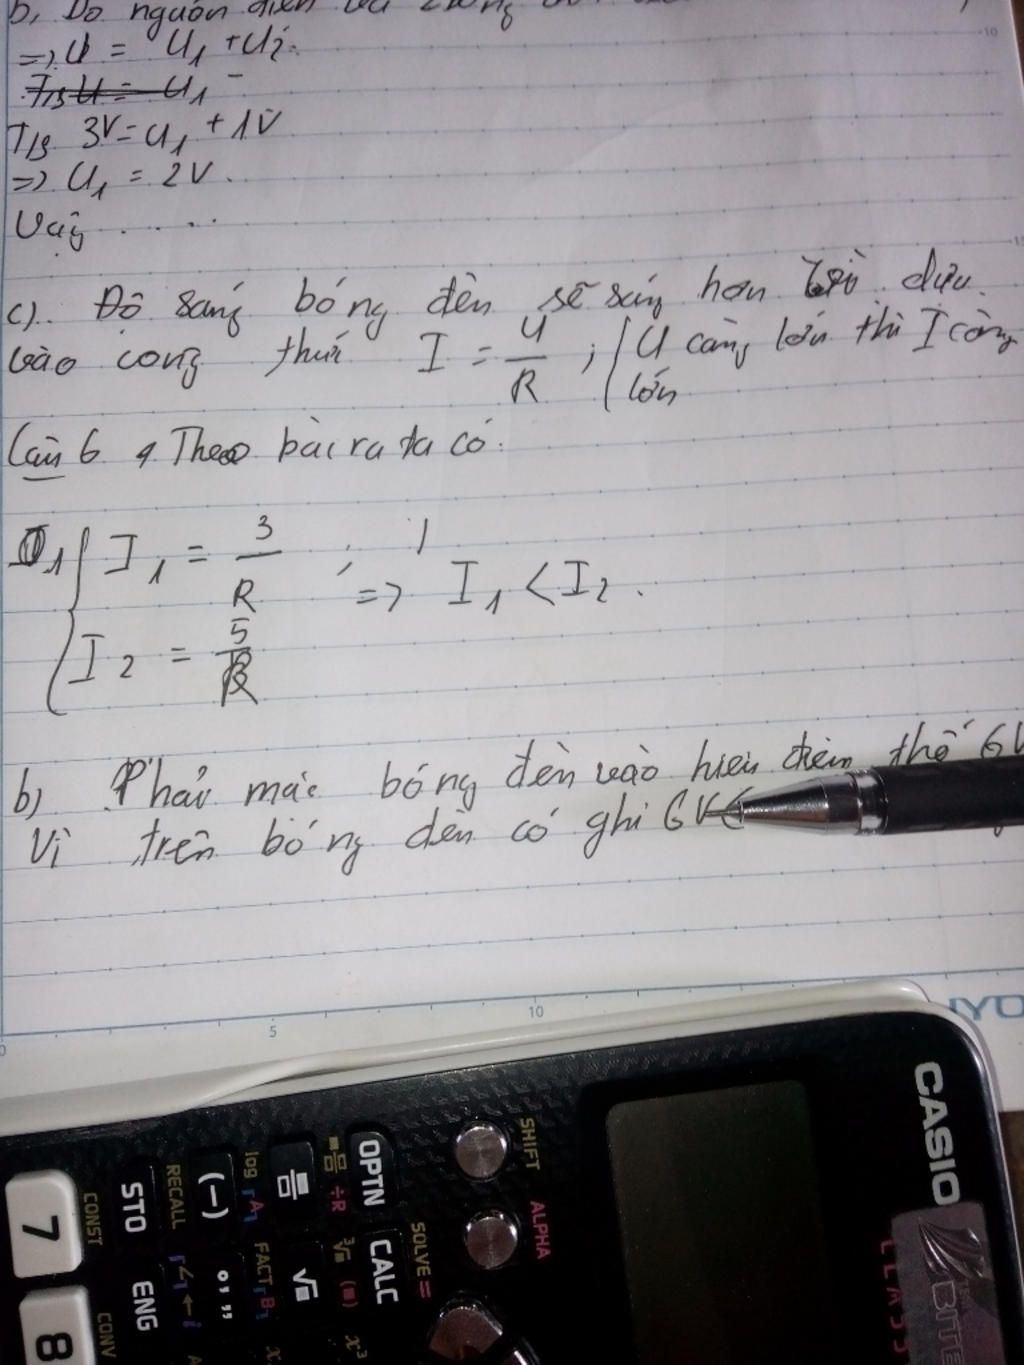 b, Do nguồn điện
=> U = U1 + U2
T/s U = U1
T/s 3V = U1 + 1V
=> U1 = 2V.
Vậy .....
c). Độ sáng bóng đèn sẽ sáng hơn dựa
vào công thức I = U/R ; U càng lớn thì I càng
lớn
Câu 6 Theo bài ra ta có:
I1 = 3/R ; => I1 < I2.
I2 = 5/R
b) Phải mắc bóng đèn vào hiệu điện thế 6V
Vì trên bóng đèn có ghi 6V
10
15
0 5 10
CASIO
SHIFT
ALPHA
OPTN
CALC
SOLVE =
STO
ENG
RECALL
CONST
CONV
FACT
log
(−)
7
8